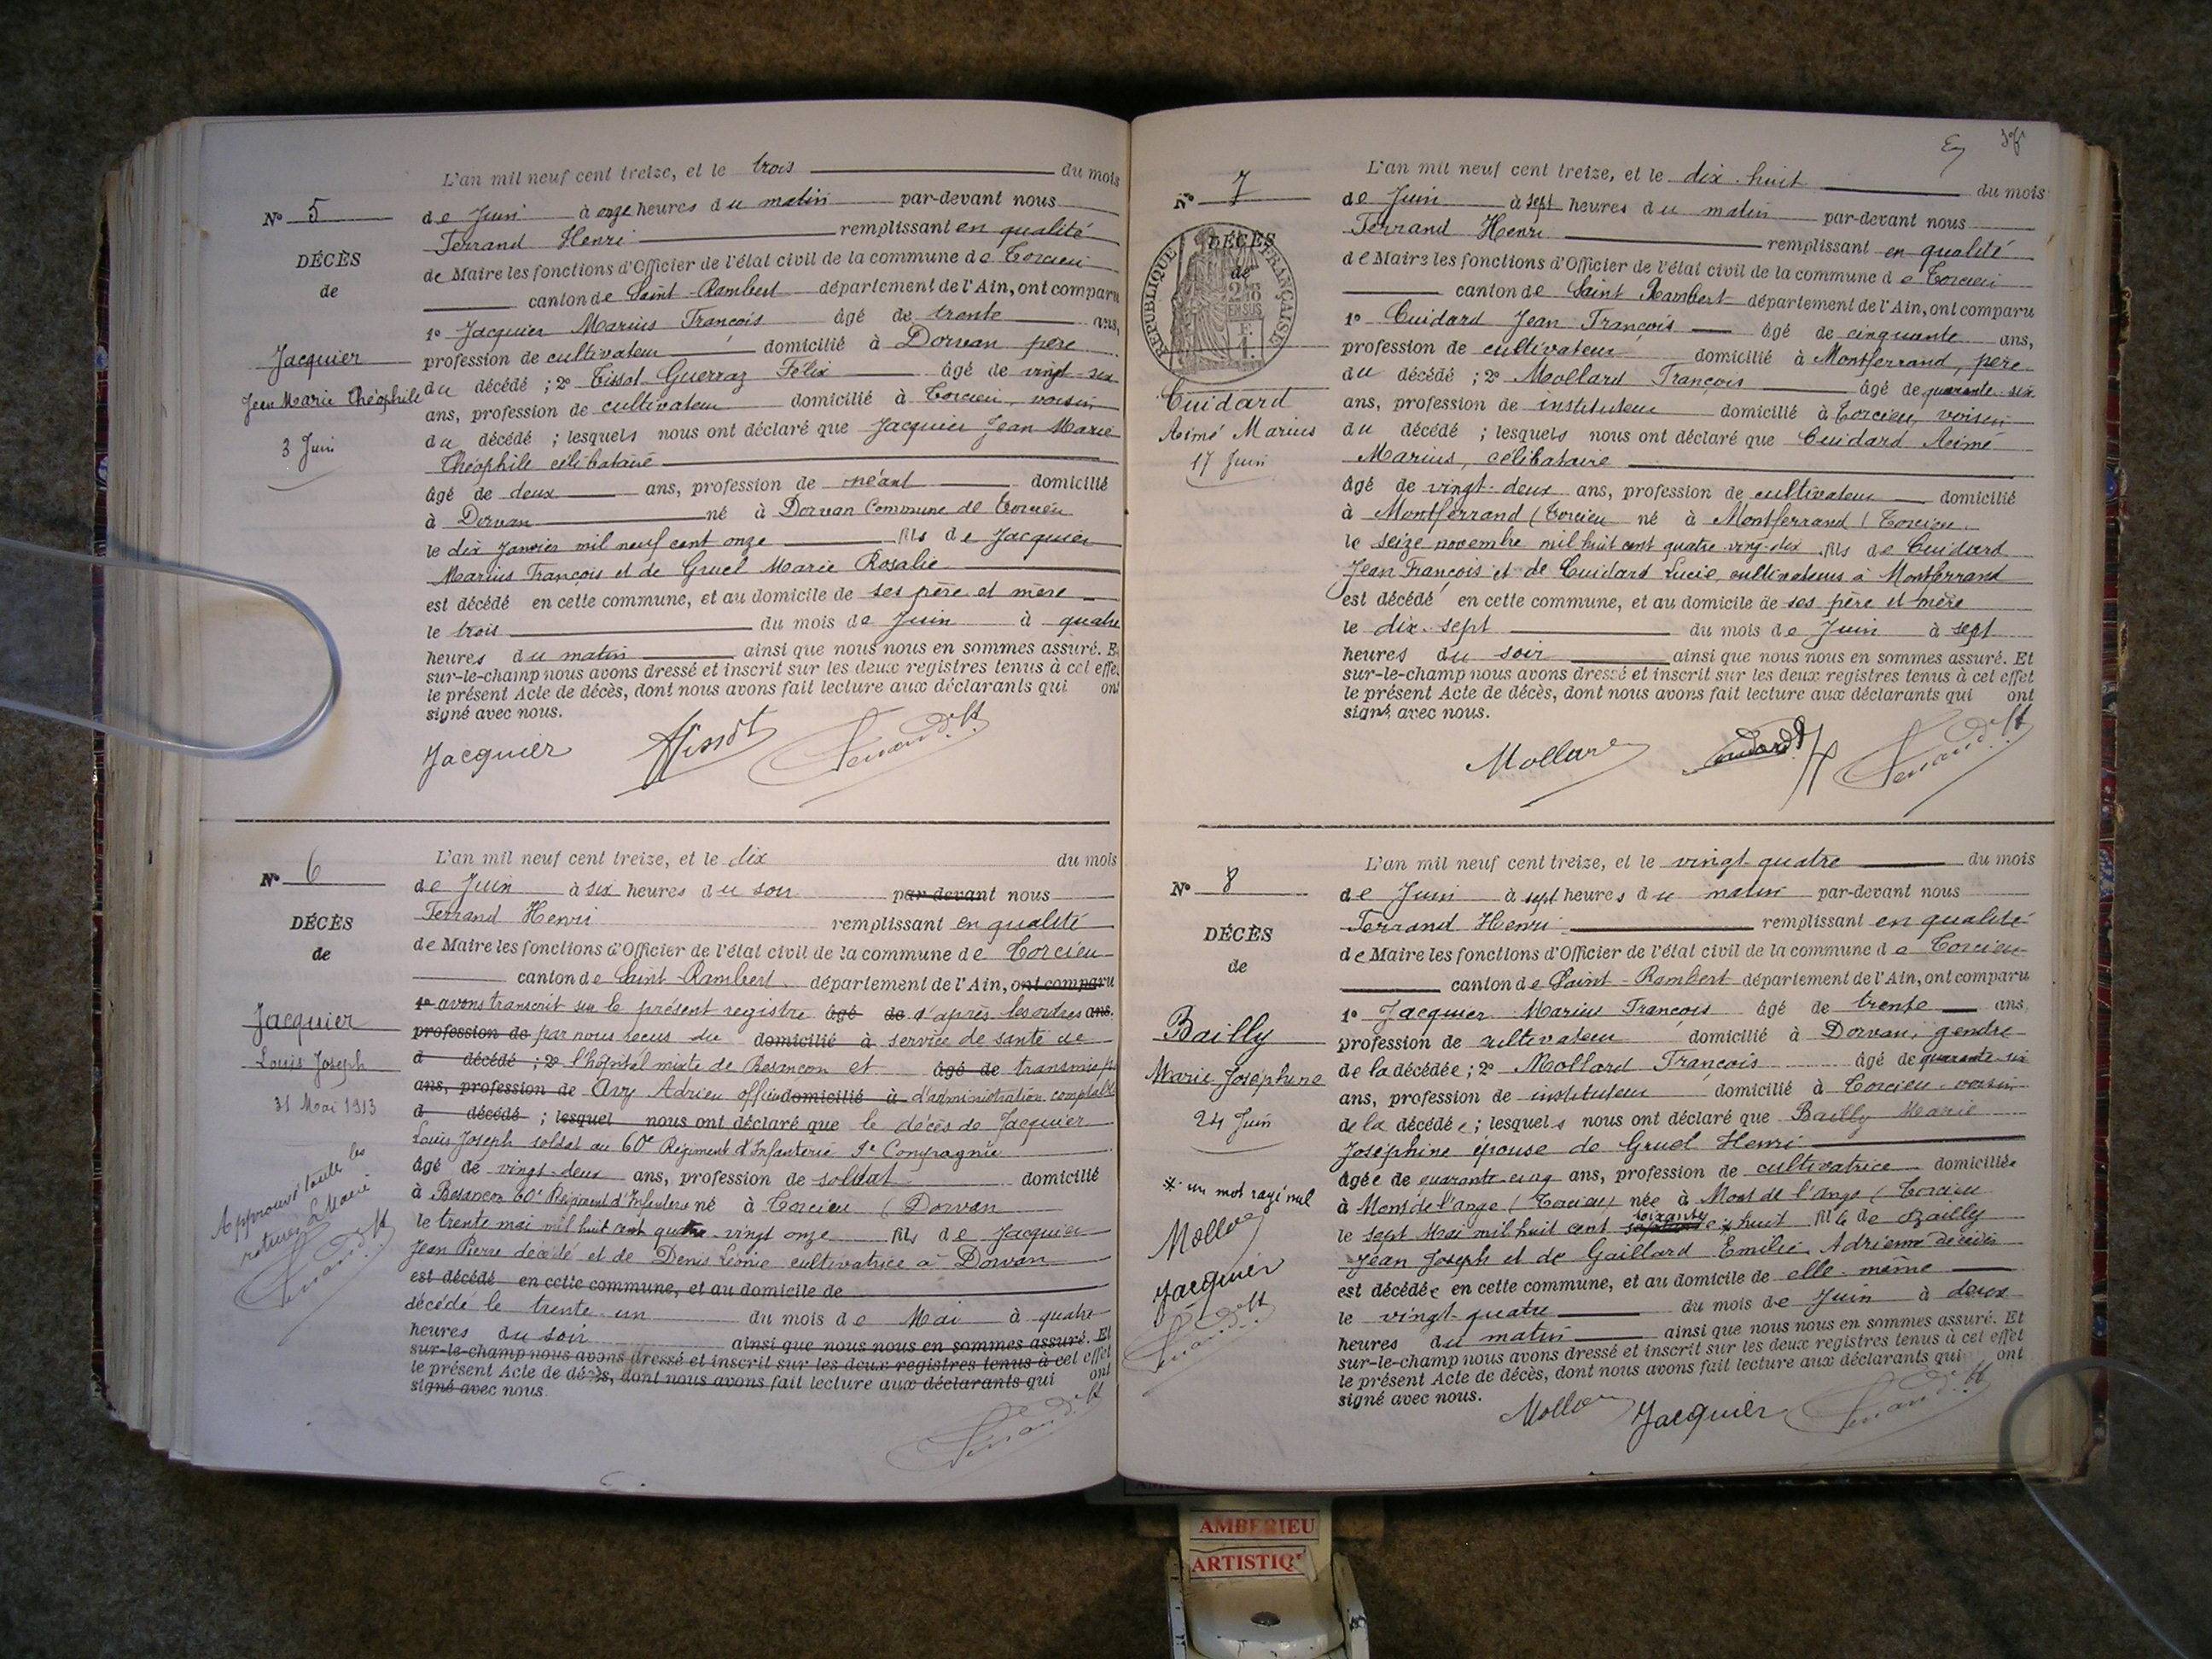 L'an mil neuf cent treize, et le trois du mois
N° 5
de Juin à onze heures du matin par-devant nous
Ferrand Henri remplissant en qualité
DÉCÈS
de Maire les fonctions d'Officier de l'état civil de la commune de Torcieu
de
canton de Saint-Rambert département de l'Ain, ont comparu
1° Jacquier Marius François âgé de trente ans,
Jacquier
profession de cultivateur domicilié à Dorvan père
Jean Marie Théophile
du décédé ; 2° Tissot Guerraz Félix âgé de vingt-six
ans, profession de cultivateur domicilié à Torcieu, voisin
3 Juin
du décédé ; lesquels nous ont déclaré que Jacquier Jean Marie
Théophile célibataire
âgé de deux ans, profession de néant domicilié
à Dorvan né à Dorvan Commune de Torcieu
le dix Janvier mil neuf cent onze fils de Jacquier
Marius François et de Gruel Marie Rosalie
est décédé en cette commune, et au domicile de ses père et mère
le trois du mois de Juin à quatre
heures du matin ainsi que nous nous en sommes assuré. E
sur-le-champ nous avons dressé et inscrit sur les deux registres tenus à cet effe
le présent Acte de décès, dont nous avons fait lecture aux déclarants qui ont
signé avec nous.
Jacquier Tissot Ferrand
L'an mil neuf cent treize, et le dix du mois
N° 6
de Juin à six heures du soir par-devant nous
Ferrand Henri remplissant en qualité
DÉCÈS
de Maire les fonctions d'Officier de l'état civil de la commune de Torcieu
de
canton de Saint-Rambert département de l'Ain, ont comparu
1° avons transcrit sur le présent registre âgé de d'après les ordres ans.
Jacquier
profession de par nous reçus du domicilié à service de santé de
Louis Joseph
d décédé ; 2° l'hôpital mixte de Besançon et âgé de transmis p
31 Mai 1913
ans, profession de Adrien officier domicilié à d'administration comptable
d décédé ; lesquel nous ont déclaré que le décès de Jacquier
Louis Joseph soldat au 60e Régiment d'Infanterie Compagnie
âgé de vingt-deux ans, profession de soldat domicilié
à Besançon 60e Régiment d'Infanterie né à Torcieu (Dorvan
le trente mai mil huit cent quatre vingt onze fils de Jacquier
Jean Pierre décédé et de Denis Léonie cultivatrice à Dorvan
est décédé en cette commune, et au domicile de
décédé le trente-un du mois de Mai à quatre
heures du soir ainsi que nous nous en sommes assuré. Et
sur-le-champ nous avons dressé et inscrit sur les deux registres tenus à cet effet
le présent Acte de décès, dont nous avons fait lecture aux déclarants qui ont
signé avec nous.
Approuvé toutes les
ratures Le Maire
Ferrand
Ferrand
L'an mil neuf cent treize, et le dix-huit du mois
N° 7
de Juin à sept heures du matin par-devant nous
Ferrand Henri remplissant en qualité
DÉCÈS
de Maire les fonctions d'Officier de l'état civil de la commune de Torcieu
de
RÉPUBLIQUE FRANÇAISE
2/10 EN SUS
F. 1.
canton de Saint Rambert département de l'Ain, ont comparu
1° Cuidard Jean François âgé de cinquante ans,
profession de cultivateur domicilié à Montferrand, père
du décédé ; 2° Mollard François âgé de quarante-six
Cuidard
ans, profession de instituteur domicilié à Torcieu, voisin
Aimé Marius
du décédé ; lesquels nous ont déclaré que Cuidard Aimé
17 Juin
Marius, célibataire
âgé de vingt-deux ans, profession de cultivateur domicilié
à Montferrand (Torcieu né à Montferrand (Torcieu
le seize novembre mil huit cent quatre-vingt-dix fils de Cuidard
Jean François et de Cuidard Lucie, cultivateurs à Montferrand
est décédé en cette commune, et au domicile de ses père et mère
le dix-sept du mois de Juin à sept
heures du soir ainsi que nous nous en sommes assuré. Et
sur-le-champ nous avons dressé et inscrit sur les deux registres tenus à cet effet
le présent Acte de décès, dont nous avons fait lecture aux déclarants qui ont
signé avec nous.
Mollard Cuidard Ferrand
L'an mil neuf cent treize, et le vingt-quatre du mois
N° 8
de Juin à sept heures du matin par-devant nous
Ferrand Henri remplissant en qualité
DÉCÈS
de Maire les fonctions d'Officier de l'état civil de la commune de Torcieu
de
canton de Saint-Rambert département de l'Ain, ont comparu
1° Jacquier Marius François âgé de trente ans
Bailly
profession de cultivateur domicilié à Dorvan, gendre
Marie Joséphine
de la décédée ; 2° Mollard François âgé de quarante-six
ans, profession de instituteur domicilié à Torcieu voisin
24 Juin
de la décédée ; lesquels nous ont déclaré que Bailly Marie
Joséphine épouse de Gruel Henri
âgée de quarante-cinq ans, profession de cultivatrice domiciliée
* un mot rayé nul
à Mont de l'Ange (Torcieu) née à Mont de l'Ange (Torcieu
le sept Mai mil huit cent soixante huit fille de Bailly
Jean Joseph et de Gaillard Emilie Adrienne décédés
est décédée en cette commune, et au domicile de elle-même
le vingt-quatre du mois de Juin à deux
heures du matin ainsi que nous nous en sommes assuré. Et
sur-le-champ nous avons dressé et inscrit sur les deux registres tenus à cet effet
le présent Acte de décès, dont nous avons fait lecture aux déclarants qui ont
signé avec nous.
Mollard
Jacquier
Ferrand
Mollard Jacquier Ferrand
AMBERIEU
ARTISTIQ